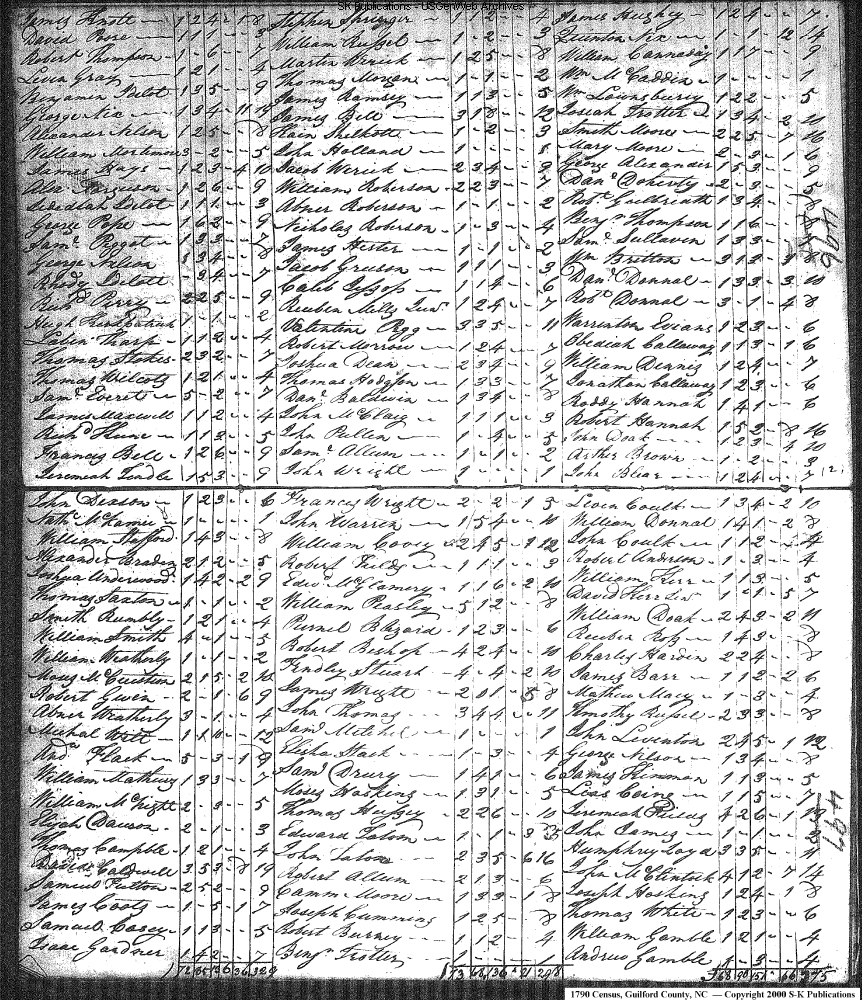 SK Publications - USGenWeb Archives
James Knott 1 2 4 - 1 8
David Rose 1 1 1 - - 3
Robert Thompson 1 - 6 - - 7
Levin Gray 1 2 1 - - 4
Benjamin 1 3 5 - - 9
George Nix 1 3 4 - 11 19
Alexander Nelson 1 2 5 - - 8
William Mortimore 3 - 2 - - 5
James Hays 1 2 3 - 4 10
Alex Ferguson 1 2 6 - - 9
1 1 1 - - 3
George Pope 1 6 2 - - 9
Saml 1 3 3 - - 7
George Nelson 1 3 4 - - 8
Rhody - 3 4 - - 7
Richd Perry 2 2 5 - - 9
Hugh 1 - 1 - - 2
Labin Tharp 1 1 2 - - 4
Thomas Stokes 2 3 2 - - 7
Thomas Wilcots 1 2 1 - - 4
Saml Everett 5 - 2 - - 7
James Maxwell 1 1 2 - - 4
Richd 1 1 3 - - 5
Francis Bell 1 2 6 - - 9
Jeremiah 1 5 3 - - 9
Stephen 1 1 2 - - 4
William Russel 1 - 2 - - 3
Martin Werick 1 2 5 - - 8
Thomas Morgan 1 - 1 - - 2
James Ramsey 1 1 3 - - 5
James Bell 3 1 8 - - 12
1 - 2 - - 3
John Holland 1 - - - - 1
Jacob Werick 2 3 4 - - 9
William Roberson 2 2 3 - - 7
Abner Roberson 1 - 1 - - 2
Nicholas Roberson 1 - 3 - - 4
James Hester 1 - 1 - - 2
Jacob 1 1 1 - - 3
Caleb Jessop 1 1 4 - - 6
Reuben Mills Junr 1 2 4 - - 7
Valentine Pegg 3 3 5 - - 11
Robert Morrow 1 2 4 - - 7
Joshua Dean 2 3 4 - - 9
Thomas Hodgson 1 3 3 - - 7
Danl Baldwin 1 3 4 - - 8
John McClaig 1 1 1 - - 3
John Pullen 1 - 4 - - 5
Saml Allum 1 - 1 - - 2
John Wright 1 - - - - 1
James Hughey 1 2 4 - - 7
Quinton Nix 1 - 1 - 12 14
William Cannaday 1 1 7 - - 9
Wm McFaddin 1 - - - - 1
Wm Lownsbury 1 2 2 - - 5
Josiah Trotter 1 3 4 - 2 10
Smith Moore 2 2 5 - 7 16
Mary Moore - 2 - 3 - 1 6
George Alexander 1 5 3 - - 9
Danl Doherty 2 - 3 - - 5
Robt Guilbreath 1 3 4 - - 8
Benjn Thompson 1 1 6 - - 8
Saml Sullaven 1 3 3 - - 7
Wm Britton 3 1 3
Danl Donnal 1 3 3 - 3 10
Robt Donnal 3 - 1 - 4 8
Warrinton Evians 1 2 3 - - 6
Obediah Callaway 1 1 3 - 1 6
William Dennis 1 2 4 - - 7
Jonathan Callaway 1 2 3 - - 6
Roddy Hannah 1 4 1 - - 6
Robert Hannah 1 5 2 - 8 16
John Doak 1 2 3 - 4 10
Arther Brown 1 - 2 - - 3
John Blear 1 2 4 - - 7
496
John Deason 1 2 3 - - 6
1 - - - - 1
William Stafford 1 4 3 - - 8
Alexander Braden 2 1 2 - - 5
Joshua Underwood 1 4 2 - 2 9
Thomas Saxton 1 - 1 - - 2
Smith Rumbly 1 2 1 - - 4
William Smith 4 - 1 - - 5
William Weatherly 1 - 1 - - 2
2 1 5 - 2 10
Robert Gwen 2 - 1 - 6 9
Abner Weatherly 3 - 1 - - 4
Michal 1 1 10 - - 12
Andw Flack 5 - 3 - 1 9
William Mathews 1 3 3 - - 7
William McKnight 2 - 3 - - 5
Elijah Dawson 2 - 1 - - 3
Thomas Campble 1 2 1 - - 4
David Caldwell 3 5 3 - 8 19
Samuel Patton 2 5 2 - - 9
James Coots 1 - 5 - 1 7
Samuel Casey 1 1 3 - - 5
Isaac Gardner 1 4 2 - - 7
Francis Wright 2 - 2 - 1 5
John Warren 1 5 4 - - 10
William Covey 2 4 5 - 1 12
Robert Fields 1 1 1 - - 3
Edwd McGlamery 1 1 6 - 2 10
William Peasley 5 1 2 - - 8
Purnel 1 2 3 - - 6
Robert Bishop 4 2 4 - - 10
Findley Stuart 4 - 4 - 2 10
James Wright 2 0 1 - 5 8
John Thomas 3 4 4 - - 11
Saml Mitchel 1 - - - - 1
Elisha 1 - 3 - - 4
Saml Drury 1 4 1 - - 6
Moses Hosking 1 3 1 - - 5
Thomas Hussey 2 2 6 - - 10
Edward Tatom 1 - 1 - 3
John Tatom 2 3 5 - 6 16
Robert Allum 2 1 3 - - 6
Camm Moore 1 3 3 - 1 8
Joseph Cumming 1 2 5 - - 8
Robert Burney 1 1 2 - - 4
Benjn Trotter 1 - - - - 1
Leven Coult 1 3 4 - 2 10
William Donnal 1 4 1 - 2 8
John Coult 1 1 2 - - 4
Robert Anderson 1 - 3 - - 4
William Kerr 1 1 3 - - 5
David Kerr Senr 1 - 1 - 5 7
William Doak 2 4 3 - 2 11
Reuben Ross 1 4 3 - - 8
Charles Hardin 2 2 4 - - 8
James Barr 1 1 2 - 2 6
Mathew Macy 1 - 3 - - 4
Timothy Russel 2 3 3 - - 8
John Leventon 2 4 5 - 1 12
George Nilson 1 3 4 - - 8
James Hinman 1 1 3 - - 5
1 1 5 - - 7
Jeremiah 4 2 6 - 1 13
John James 1 - 1 - -
Humphrey Loyd 3 3 5 - - 11
McClintock 4 1 2 - 7 14
Joseph Hosking 1 2 4 - 1 8
Thomas White 1 2 3 - - 6
William Gamble 1 2 1 - - 4
Andrew Gamble 1 - 3 - - 4
497
1790 Census, Guilford County, NC — Copyright 2000 S-K Publications